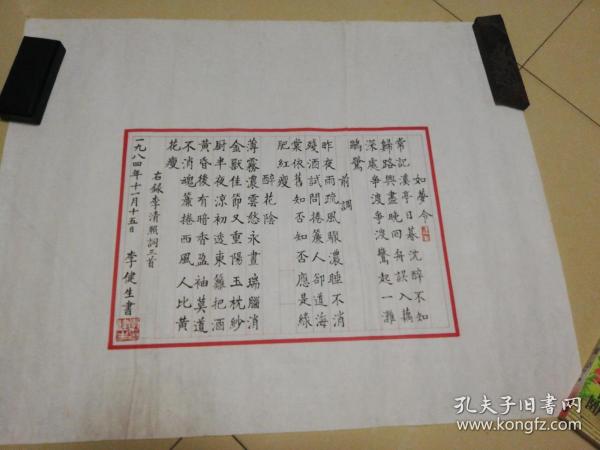 如夢令
常記溪亭日暮沈醉不知
歸路興盡晚回舟誤入藕
深處爭渡爭渡驚起一灘
鷗鷺
前調
昨夜雨疏風驟濃睡不消
殘酒試問捲簾人卻道海
棠依舊知否知否應是綠
肥紅瘦
醉花陰
薄霧濃雲愁永晝瑞腦消
金獸佳節又重陽玉枕紗
廚半夜涼初透東籬把酒
黃昏後有暗香盈袖莫道
不消魂簾捲西風人比黃
花瘦
右錄李清照詞三首
一九八四年十一月十五日 李健生書
孔夫子旧书网
www.kongfz.com